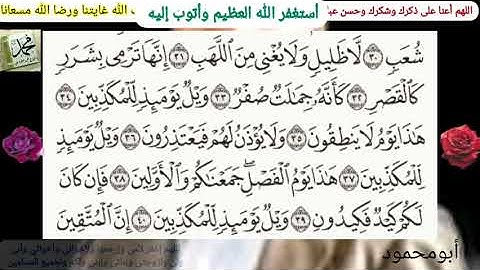 اللهم أعنا على ذكرك وشكرك وحسن عبا
أستغفر الله العظيم وأتوب إليه
الله غايتنا ورضا الله مسعانا
شُعَبٍ ٣٠ لَّا ظَلِيلٍ وَلَا يُغْنِى مِنَ اللَّهَبِ ٣١ إِنَّهَا تَرْمِى بِشَرَرٍ
كَالْقَصْرِ ٣٢ كَأَنَّهُ جِمَالَتٌ صُفْرٌ ٣٣ وَيْلٌ يَوْمَئِذٍ لِّلْمُكَذِّبِينَ ٣٤
هَٰذَا يَوْمُ لَا يَنطِقُونَ ٣٥ وَلَا يُؤْذَنُ لَهُمْ فَيَعْتَذِرُونَ ٣٦ وَيْلٌ يَوْمَئِذٍ
لِّلْمُكَذِّبِينَ ٣٧ هَٰذَا يَوْمُ الْفَصْلِ جَمَعْنَاكُمْ وَالْأَوَّلِينَ ٣٨ فَإِن كَانَ
لَكُمْ كَيْدٌ فَكِيدُونِ ٣٩ وَيْلٌ يَوْمَئِذٍ لِّلْمُكَذِّبِينَ ٤٠ إِنَّ الْمُتَّقِينَ
أبومحمود